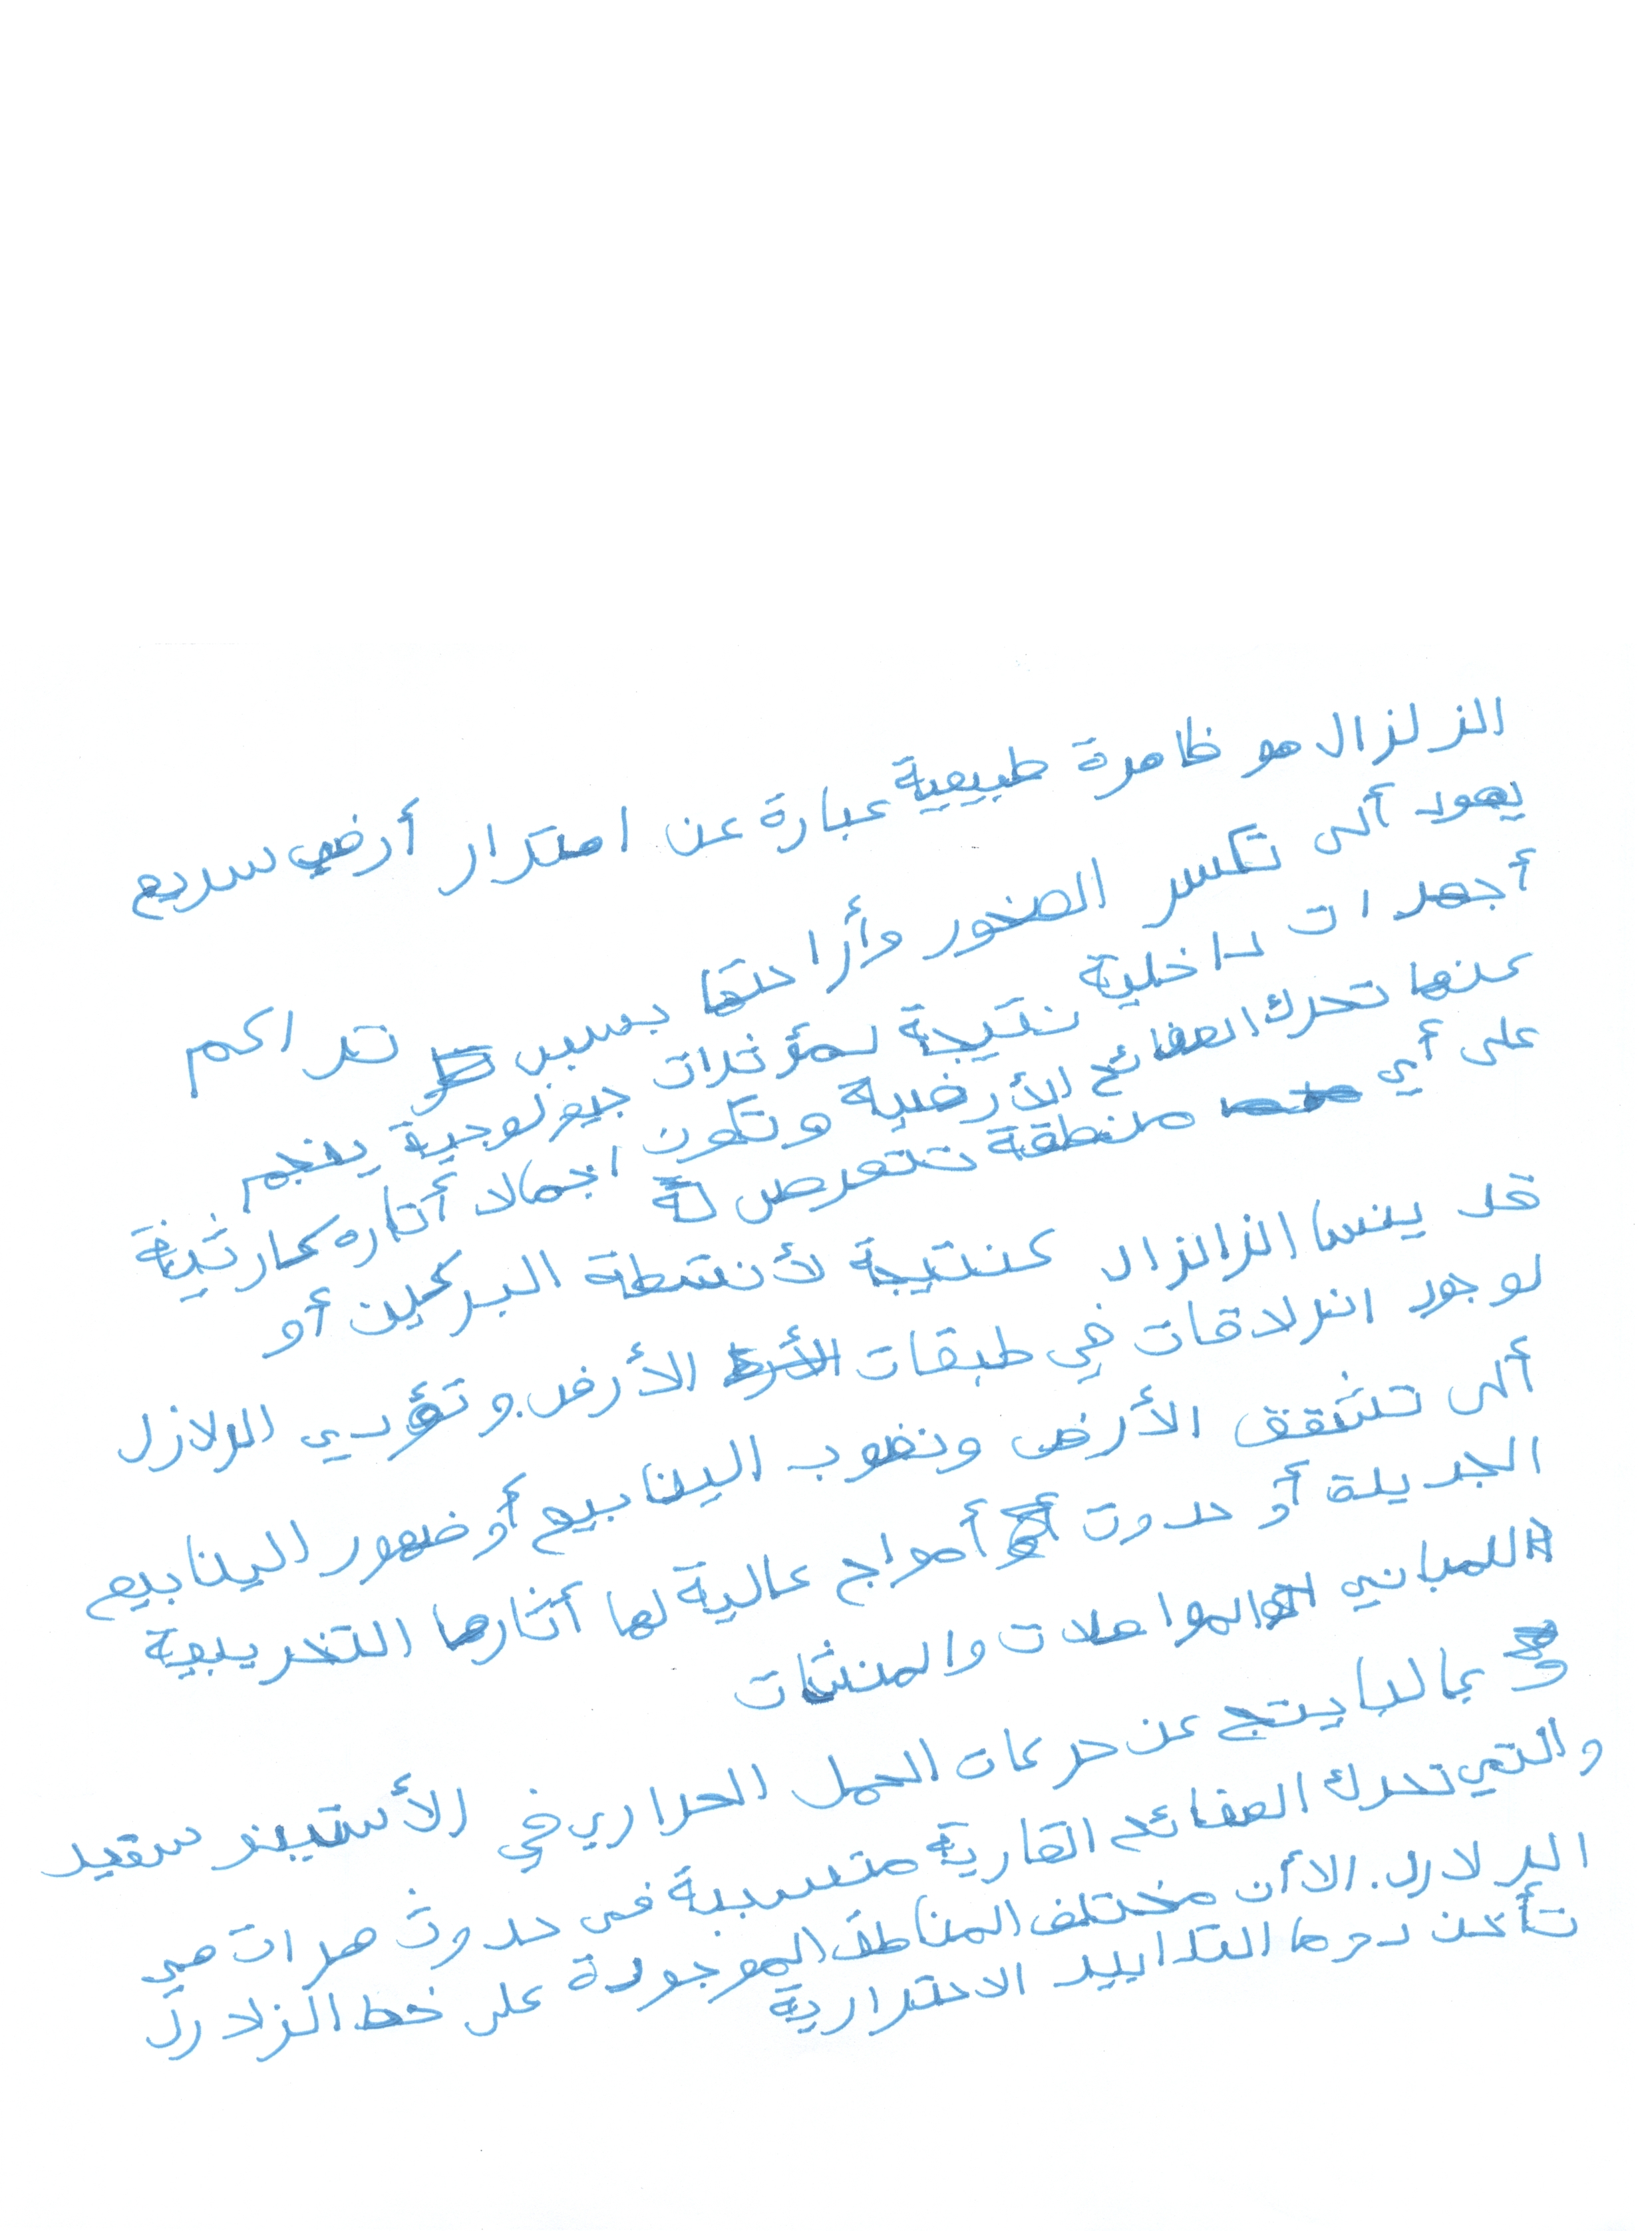 الزلزال هو ظاهرة طبيعية عبارة عن اهتزاز أرضي سريع
يعود ألى تكسر الصخور وأزاحتها بسبب تراكم
أجهدات داخلية نتيجة لمؤثرات جيولوجية ينجم
عنها تحرك الصفائح الأرضية وتكون اجمالا أثاره كارثية
على أي منطقة تتعرض له
قد ينسا الزالزال كنتيجة لأنشطة البركين أو
لوجود انزلاقات في طبقات الأرض. وتؤدي الزلازل
ألى تشقق الأرض ونضوب الينابيع أو ضهور الينابيع
الجديدة أو حدوث أمواج عالية لها أثارها التخريبية
للمباني والمواصلات والمنشات
غالبا ينتج عن حركات الحمل الحراري في الأستينو سفير
والتي تحرك الصفائح القارية متسببة في حدوث هزات هي
الزلازل. الا أن مختلف المناطق الموجودة على خط الزلازل
تأخذ دوما التدابير الاحترازية